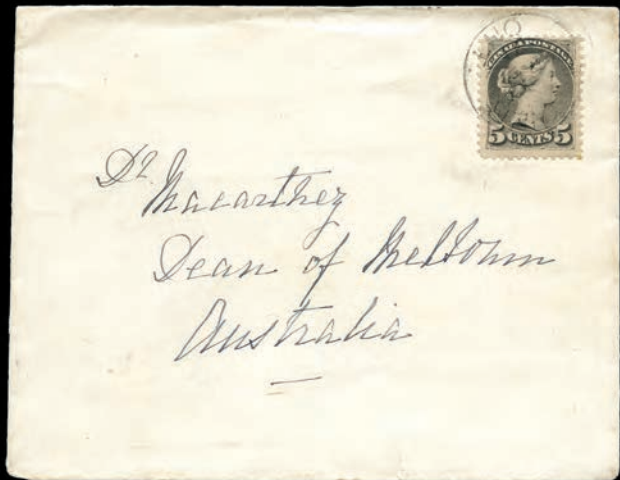 CANADA POSTAGE
5 CENTS 5
Dr Macarthey
Dean of Melbourn
Australia